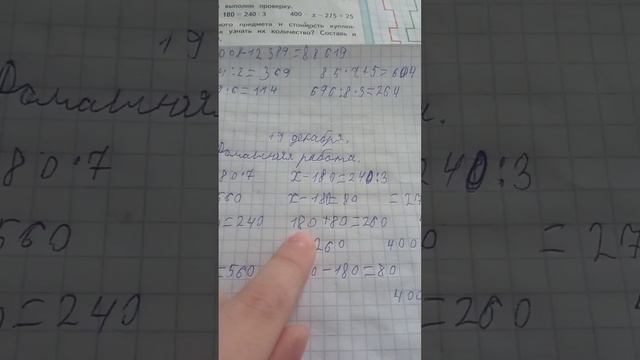 выполни проверку.
180 = 240 : 3 400 x − 275 = 25
ного предмета и стоимость куплен-
к узнать их количество? Составь и
008-12389=88619
:2=369 85·7+5=604
·6=114 696:8·3=264
19 декабря.
Домашняя работа.
80·7 x-180=240:3
560 x-180=80 =27
=240 180+80=260
260 400
=560 0-180=80
400
19
Домашняя
80·7 240:3
560 =27
=240 =260